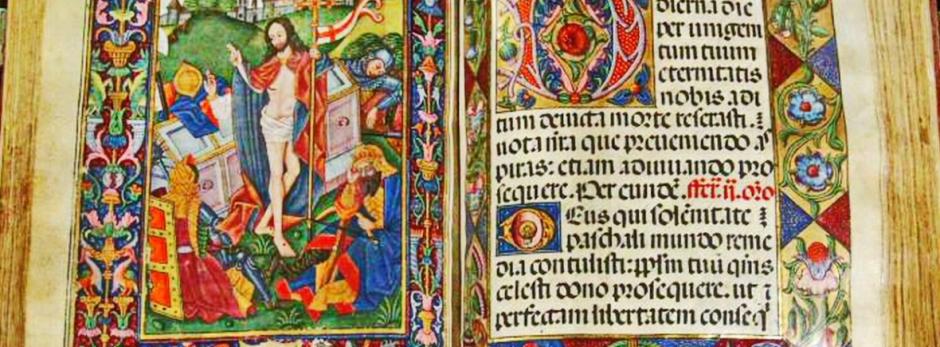 dierna die
per unigeni
tum tuum
eternitatis
nobis adi
tum devicta morte reserasti.
vota nr̄a que preveniendo as
piras: etiam adiuvando pro
sequere. Per eundē. ffer̄. ij. or̄o
Deus qui solēnitate
paschali mundo reme
dia contulisti: ppl̄m tuū qm̄s
celesti dono prosequere. ut
perfectam libertatem conseq̄